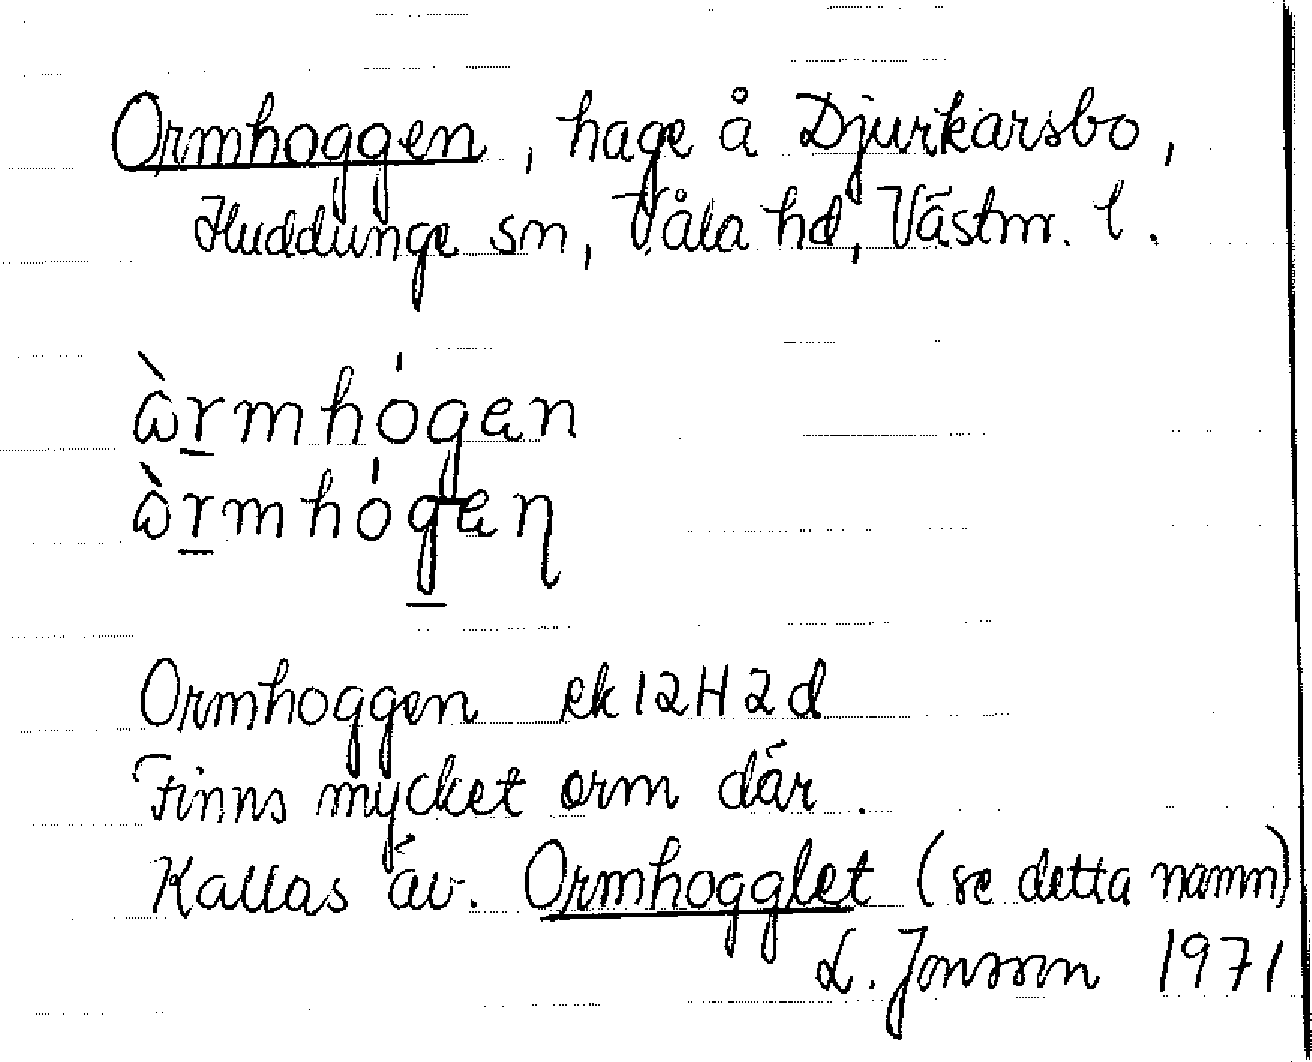 Ormhoggen, hage å Djurkarsbo,
Huddunge sn, Våla hd, Västm. l.
ὼr̲mhógen
ὼr̲mhóg̲eŋ
Ormhoggen ek 12H2d
Finns mycket orm där.
Kallas äv. Ormhogglet (se detta namn)
L. Jonsson 1971